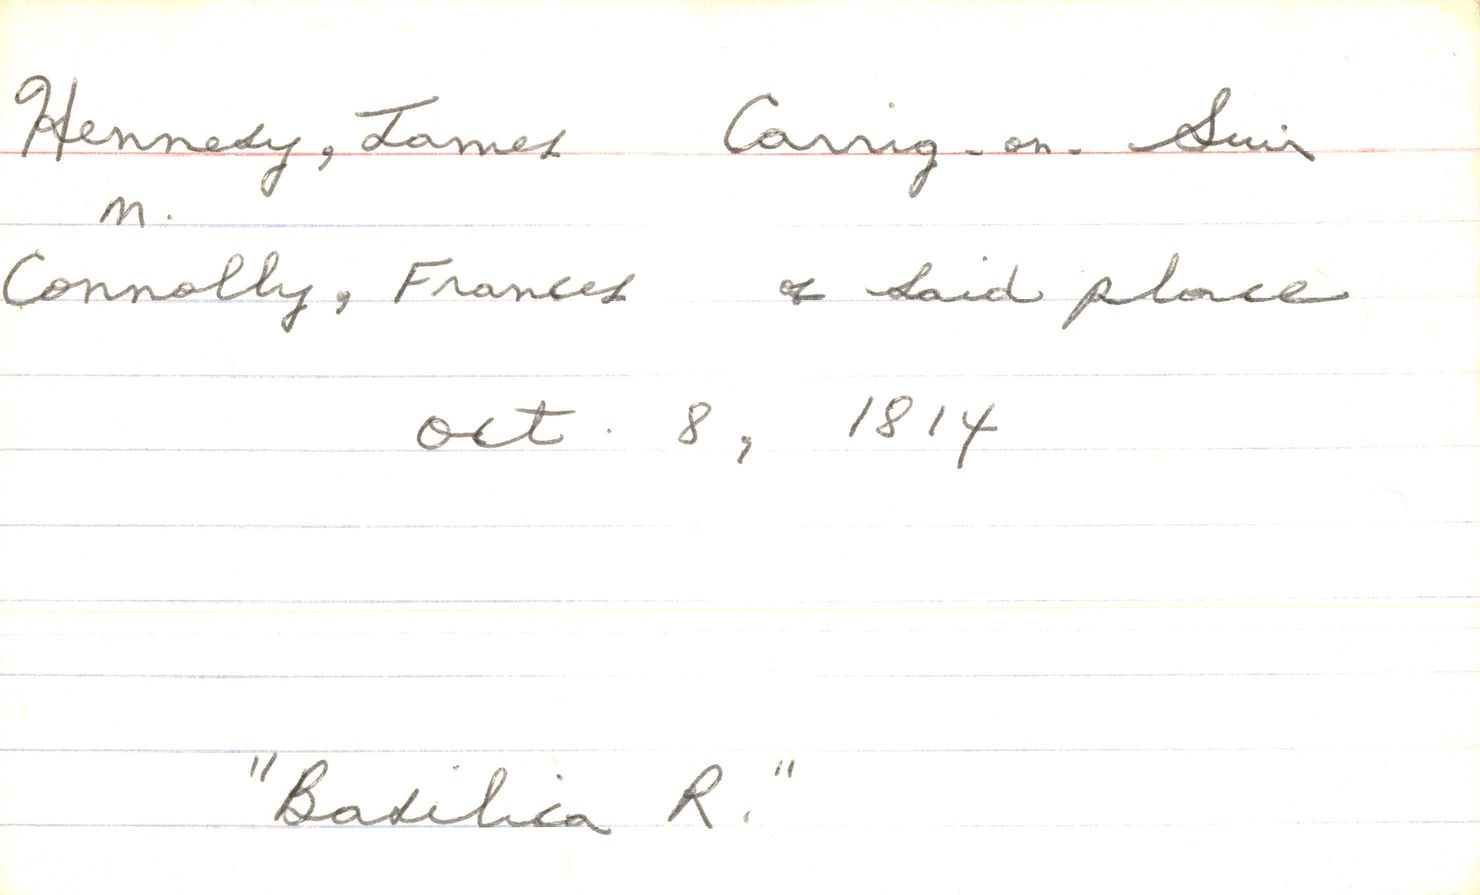 Hennesy, James Carrig-on-Suir
m.
Connolly, Frances of said place
Oct. 8, 1814
"Basilica R."